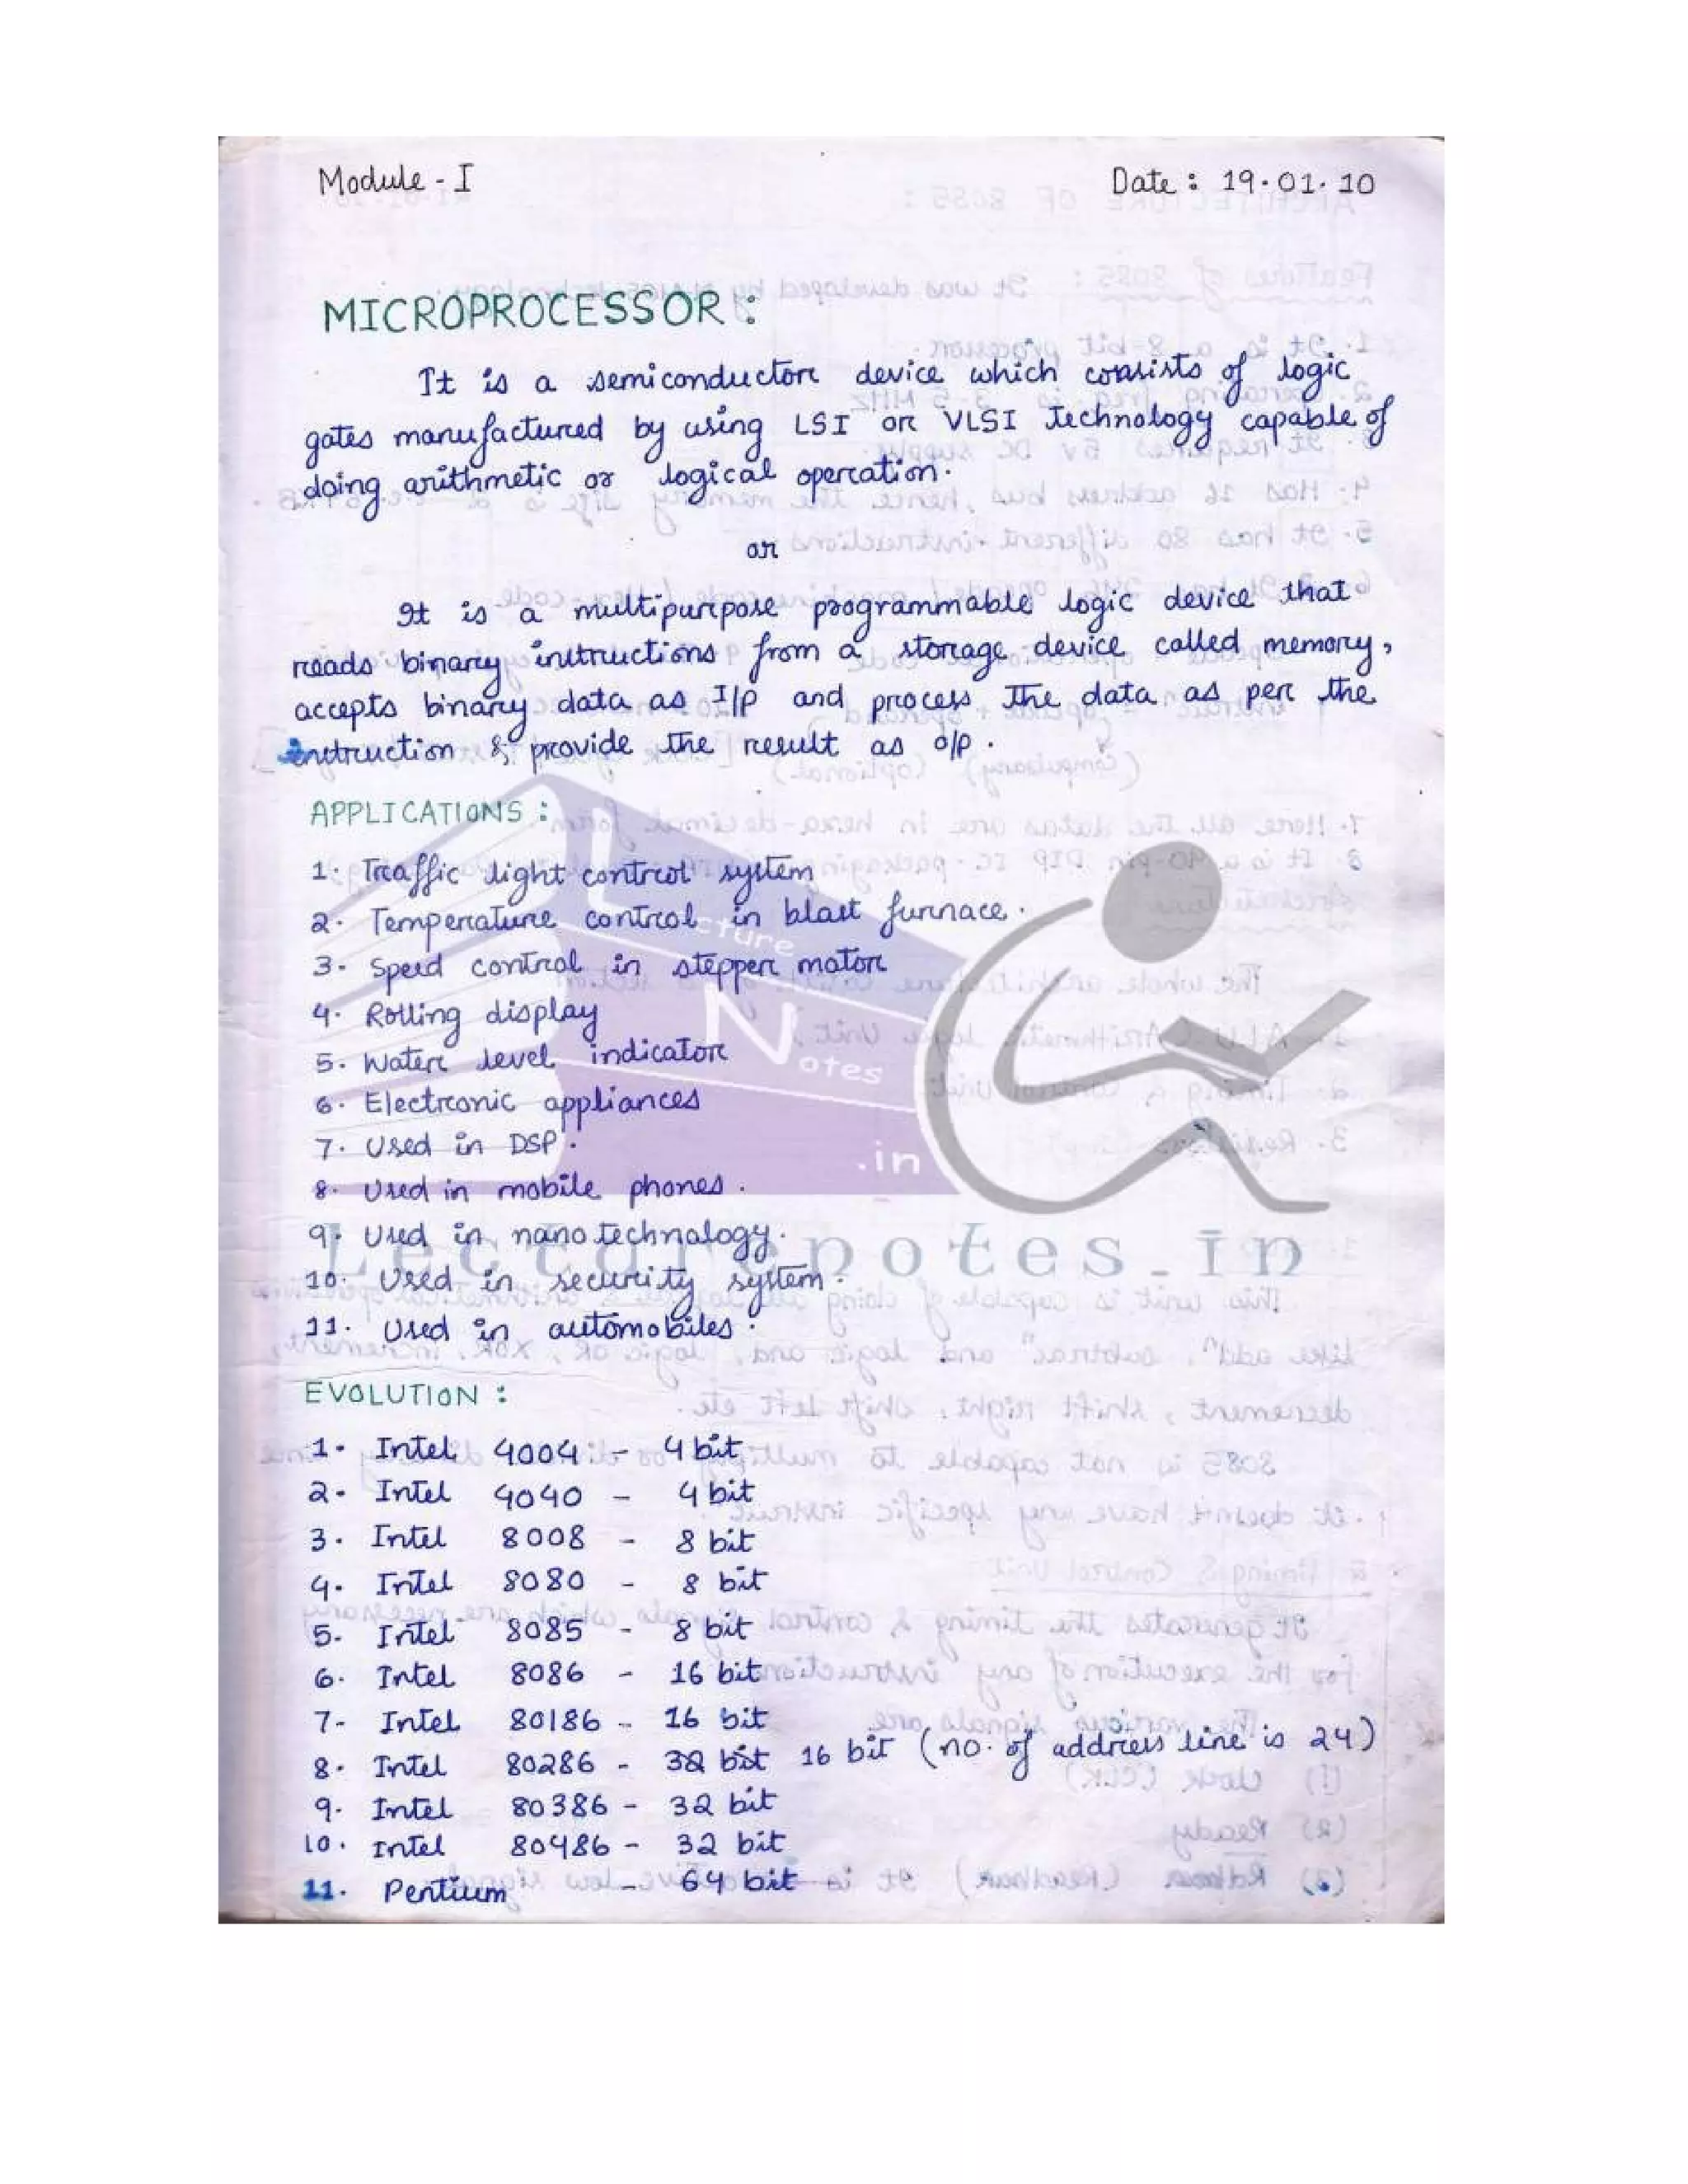 Module - I Date : 19.01.10
MICROPROCESSOR :
It is a semiconductor device which consists of logic
gates manufactured by using LSI or VLSI Technology capable of
doing arithmetic or logical operation.
or
It is a multipurpose programmable logic device that
reads binary instructions from a storage device called memory,
accepts binary data as I/p and process the data as per the
instruction & provide the result as o/p .
APPLICATIONS :
1. Traffic light control system
2. Temperature control in blast furnace.
3. Speed control in stepper motor
4. Rolling display
5. Water level indicator
6. Electronic appliances
7. Used in DSP.
8. Used in mobile phones.
9. Used in nano technology.
10. Used in security system.
11. Used in automobiles.
Lecture
Notes
.in
Lecturenotes.in
EVOLUTION :
1. Intel 4004 - 4 bit
2. Intel 4040 - 4 bit
3. Intel 8008 - 8 bit
4. Intel 8080 - 8 bit
5. Intel 8085 - 8 bit
6. Intel 8086 - 16 bit
7. Intel 80186 - 16 bit
8. Intel 80286 - 32 bit 16 bit (no. of address line is 24)
9. Intel 80386 - 32 bit
10. Intel 80486 - 32 bit
11. Pentium - 64 bit